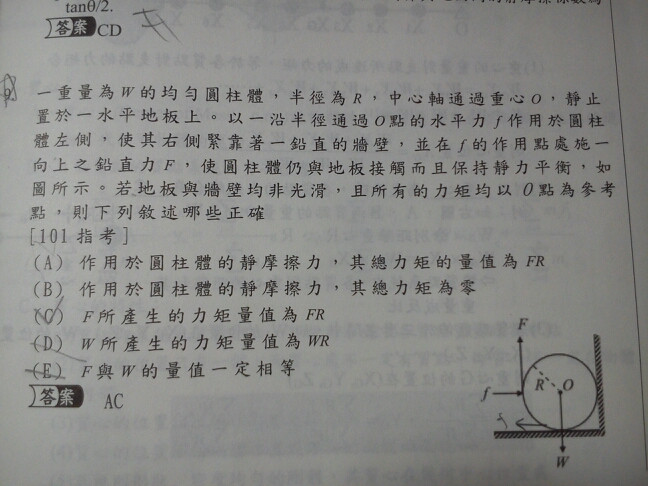 tanθ/2.
答案 CD
一重量為 W 的均勻圓柱體，半徑為 R，中心軸通過重心 O，靜止
置於一水平地板上。以一沿半徑通過 O點的水平力 f 作用於圓柱
體左側，使其右側緊靠著一鉛直的牆壁，並在 f的作用點處施一
向上之鉛直力 F，使圓柱體仍與地板接觸而且保持靜力平衡，如
圖所示。若地板與牆壁均非光滑，且所有的力矩均以 O點為參考
點，則下列敘述哪些正確
[101指考]
(A) 作用於圓柱體的靜摩擦力，其總力矩的量值為 FR
(B) 作用於圓柱體的靜摩擦力，其總力矩為零
(C) F所產生的力矩量值為 FR
(D) W所產生的力矩量值為 WR
(E) F與W的量值一定相等
答案 AC
F
R
O
f
W